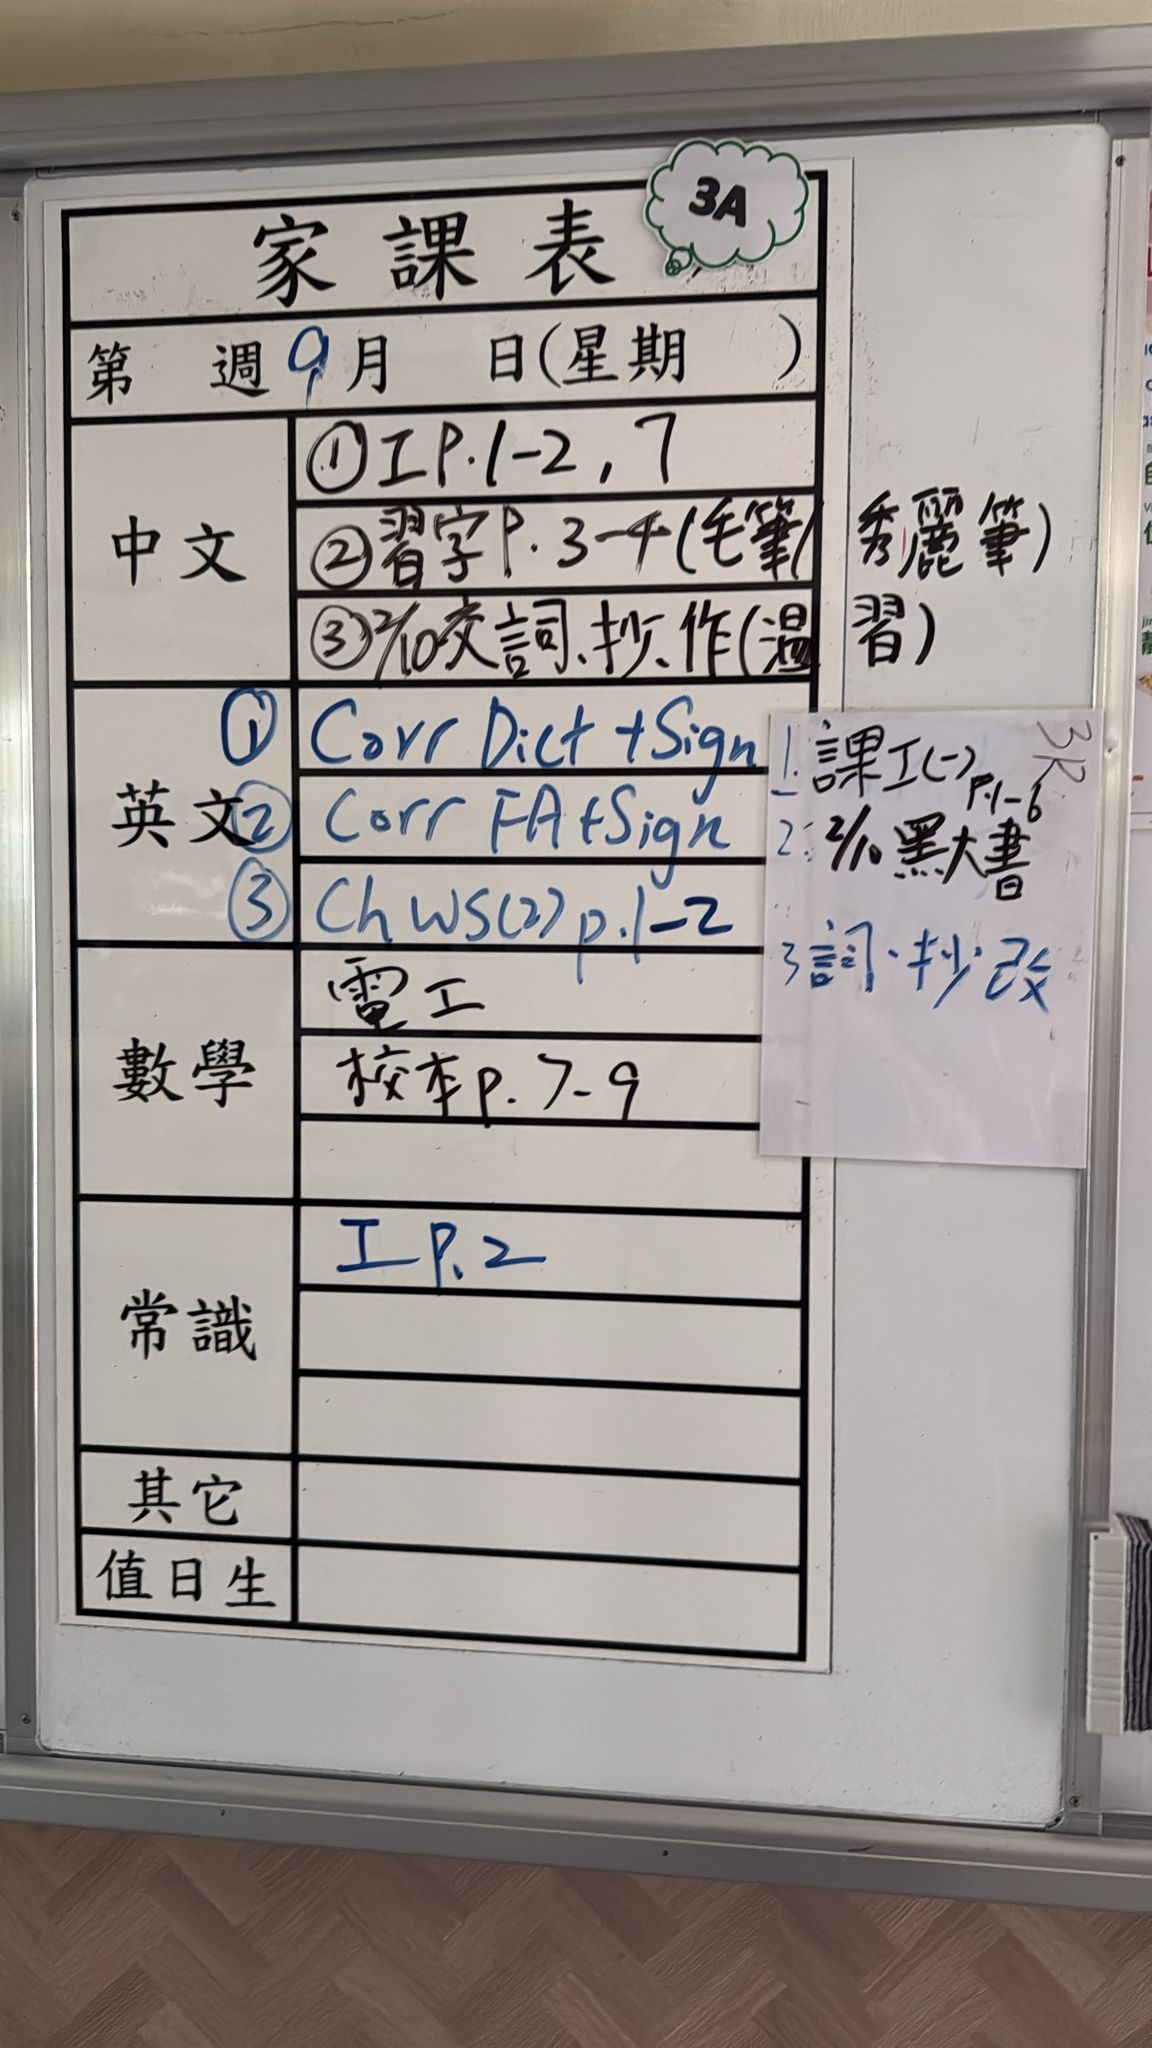 3A
家課表
第 週 9月 日(星期 )
中文
①工P.1-2, 7
②習字P.3-4(毛筆/秀麗筆)
③2/10交詞、抄、作(溫習)
英文
① Corr Dict + Sign
② Corr FA + Sign
③ Ch WS(2) p.1-2
數學
電工
校本p.7-9
常識
工P.2
其它
值日生
3R
1. 課工(一) P.1-6
2. 2/10 黑大書
3 詞、抄、改